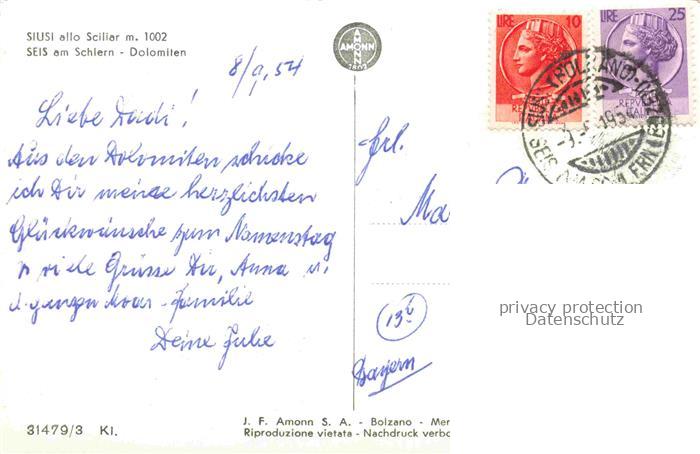 SIUSI allo Sciliar m. 1002
SEIS am Schlern - Dolomiten
AMONN
8/9,54
Liebe Dadi!
Aus den Dolomiten schicke
ich Dir meine herzlichsten
Glückwünsche zum Namenstag
viele Grüsse Dir, Anna u.
d. ganzen Moar-Familie
Deine Jule
31479/3 Kl.
LIRE 10
LIRE 25
SIUSI (BOLZANO)
Frl.
Ma
13b
Bayern
J. F. Amonn S. A. - Bolzano - Mer
Riproduzione vietata - Nachdruck verbo
privacy protection
Datenschutz